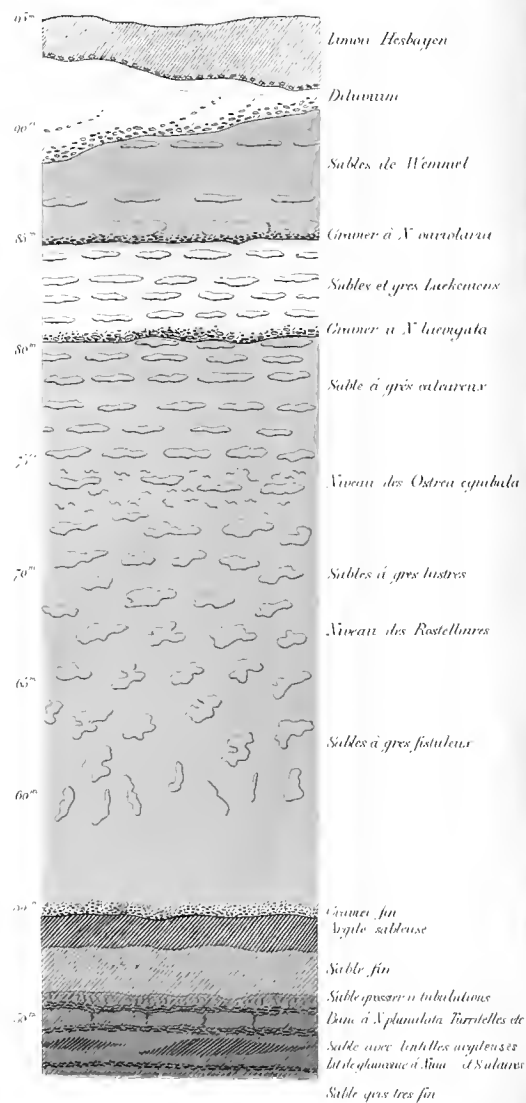 95m
Limon Hesbayen
Diluvium
90m
Sables de Wemmel
85m
Gravier à N variolaria
Sables et grès Laekeniens
Gravier a N laevigata
80m
Sable à grès calcareux
75m
Niveau des Ostrea cymbula
70m
Sables à gres lustres
Niveau des Rostellaires
65m
Sables à gres fistuleux
60m
Gravier fin
Argile sableuse
Sable fin
Sable grossier a tubulations
50m
Banc à N planulata Turritelles etc
Sable avec lentilles argileuses
Lit de glauconie à
Sable gris tres fin